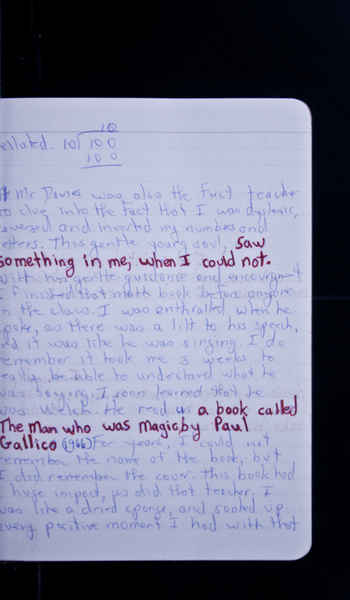 10
ellated. 10 100
100
Mr Davies was also the First teacher
to clue into the fact that I was dyslexic,
reversed and inverted my numbers and
letters. This gentle young soul, saw
something in me, when I could not.
With his gentle guidance and encouragment
I Finished that math book before anyone
in the class. I was enthralled when he
spoke, as there was a lilt to his speech,
and it was like he was singing. I do
remember it took me 3 weeks to
really be able to understand what he
was saying. I soon learned that he
was Welch. He read us a book called
The Man who was magic by Paul
Gallico (1966) For years, I could not
remember the name of the book, but
I did remember the cover. This book had
a huge impact, as did that teacher. I
was like a dried sponge, and soaked up
every positive moment I had with that